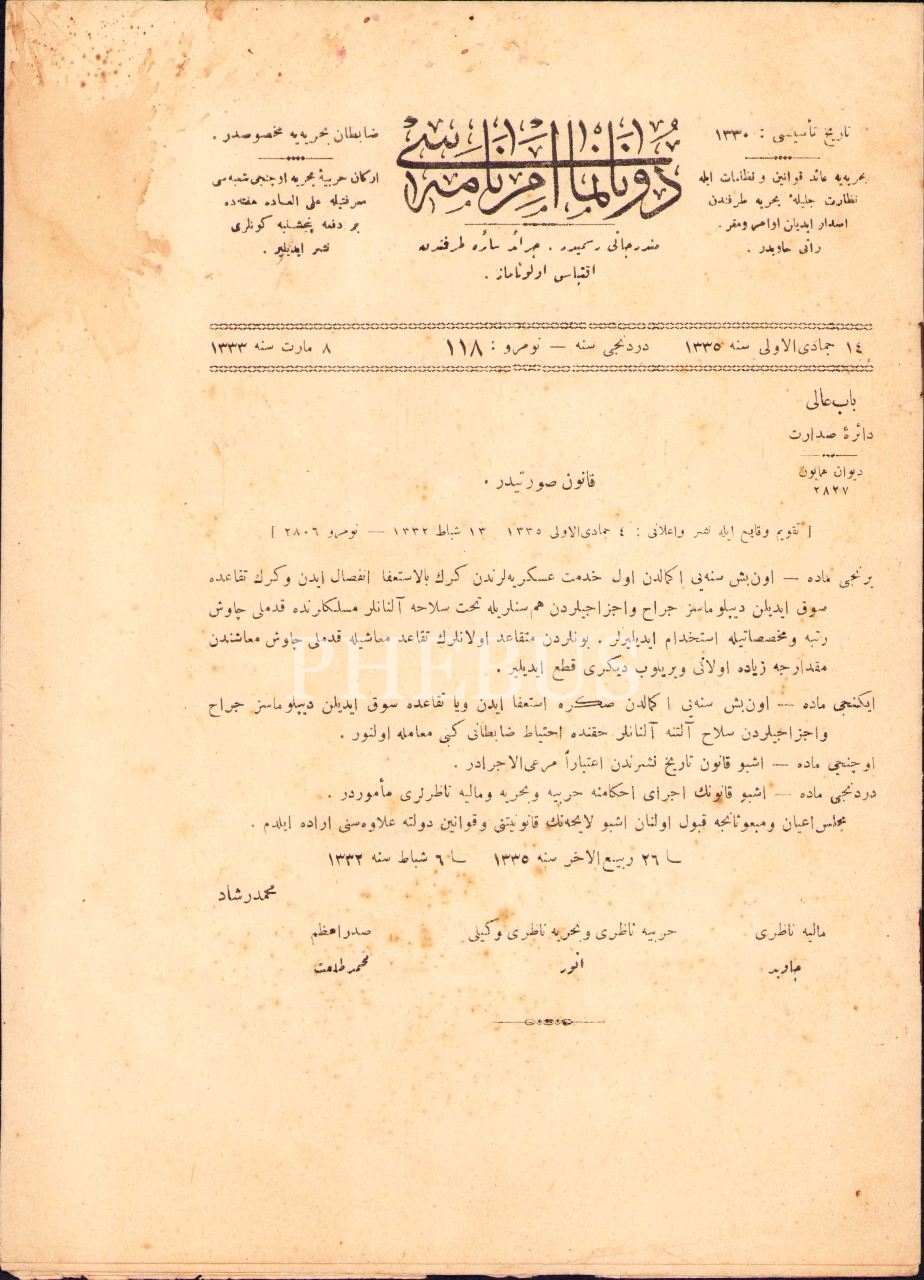 تاریخ تأسیسی : ١٣٣٠
بحریه‌یه عائد قوانین و نظامات ایله
نظارت جلیلۀ بحریه طرفندن
اصدار ایدیلن اوامر و مقر .
راتی حاویدر .
دونانما امرنامه‌سی
مندرجاتی رسمیدر . جرائد سائره طرفندن
اقتباس اولوناماز .
ضابطان بحریه‌یه مخصوصدر .
ارکان حربیۀ بحریه اوچنجی شعبه‌سی
معرفتیله علی العاده هفته‌ده
بر دفعه پنجشنبه کونلری
نشر ایدیلیر .
١٤ جمادی‌الاولی سنه ١٣٣٥ دردنجی سنه — نومرو : ١١٨ ٨ مارت سنه ١٣٣٣
باب عالی
دائرۀ صدارت
دیوان همایون
٢٨٢٧
قانون صورتیدر .
[ تقویم وقایع ایله نشر و اعلانی : ٤ جمادی‌الاولی ١٣٣٥ ١٣ شباط ١٣٣٢ — نومرو ٢٨٠٦ ]
برنجی ماده — اون‌بش سنه‌یی اکمالدن اول خدمت عسکریه‌لرندن کرك بالاستعفا انفصال ایدن وکرك تقاعده
سوق ایدیلن دیپلوماسز جراح واجزاجیلردن هم‌سنلریله تحت سلاحه آلنانلر مسلکلرنده قدملی چاوش
رتبه ومخصصاتیله استخدام ایدیلیرلر . بونلردن متقاعد اولانلرك تقاعد معاشیله قدملی چاوش معاشندن
مقدارجه زیاده اولانی ویریلوب دیکری قطع ایدیلیر .
ایکنجی ماده — اون‌بش سنه‌یی اکمالدن صکره استعفا ایدن ویا تقاعده سوق ایدیلن دیپلوماسز جراح
واجزاجیلردن سلاح آلتنه آلنانلر حقنده احتیاط ضابطانی کبی معامله اولنور .
اوچنجی ماده — اشبو قانون تاریخ نشرندن اعتباراً مرعی‌الاجرادر .
دردنجی ماده — اشبو قانونك اجرای احکامنه حربیه وبحریه ومالیه ناظرلری مأموردر .
مجلس اعیان ومبعوثانجه قبول اولنان اشبو لایحه‌نك قانونیتنی وقوانین دولته علاوه‌سنی اراده ایلدم .
٢٦ ربیع‌الاخر سنه ١٣٣٥ ٦ شباط سنه ١٣٣٢
محمد رشاد
مالیه ناظری حربیه ناظری وبحریه ناظری وکیلی صدر اعظم
جاوید انور محمد طلعت
PHEBUS